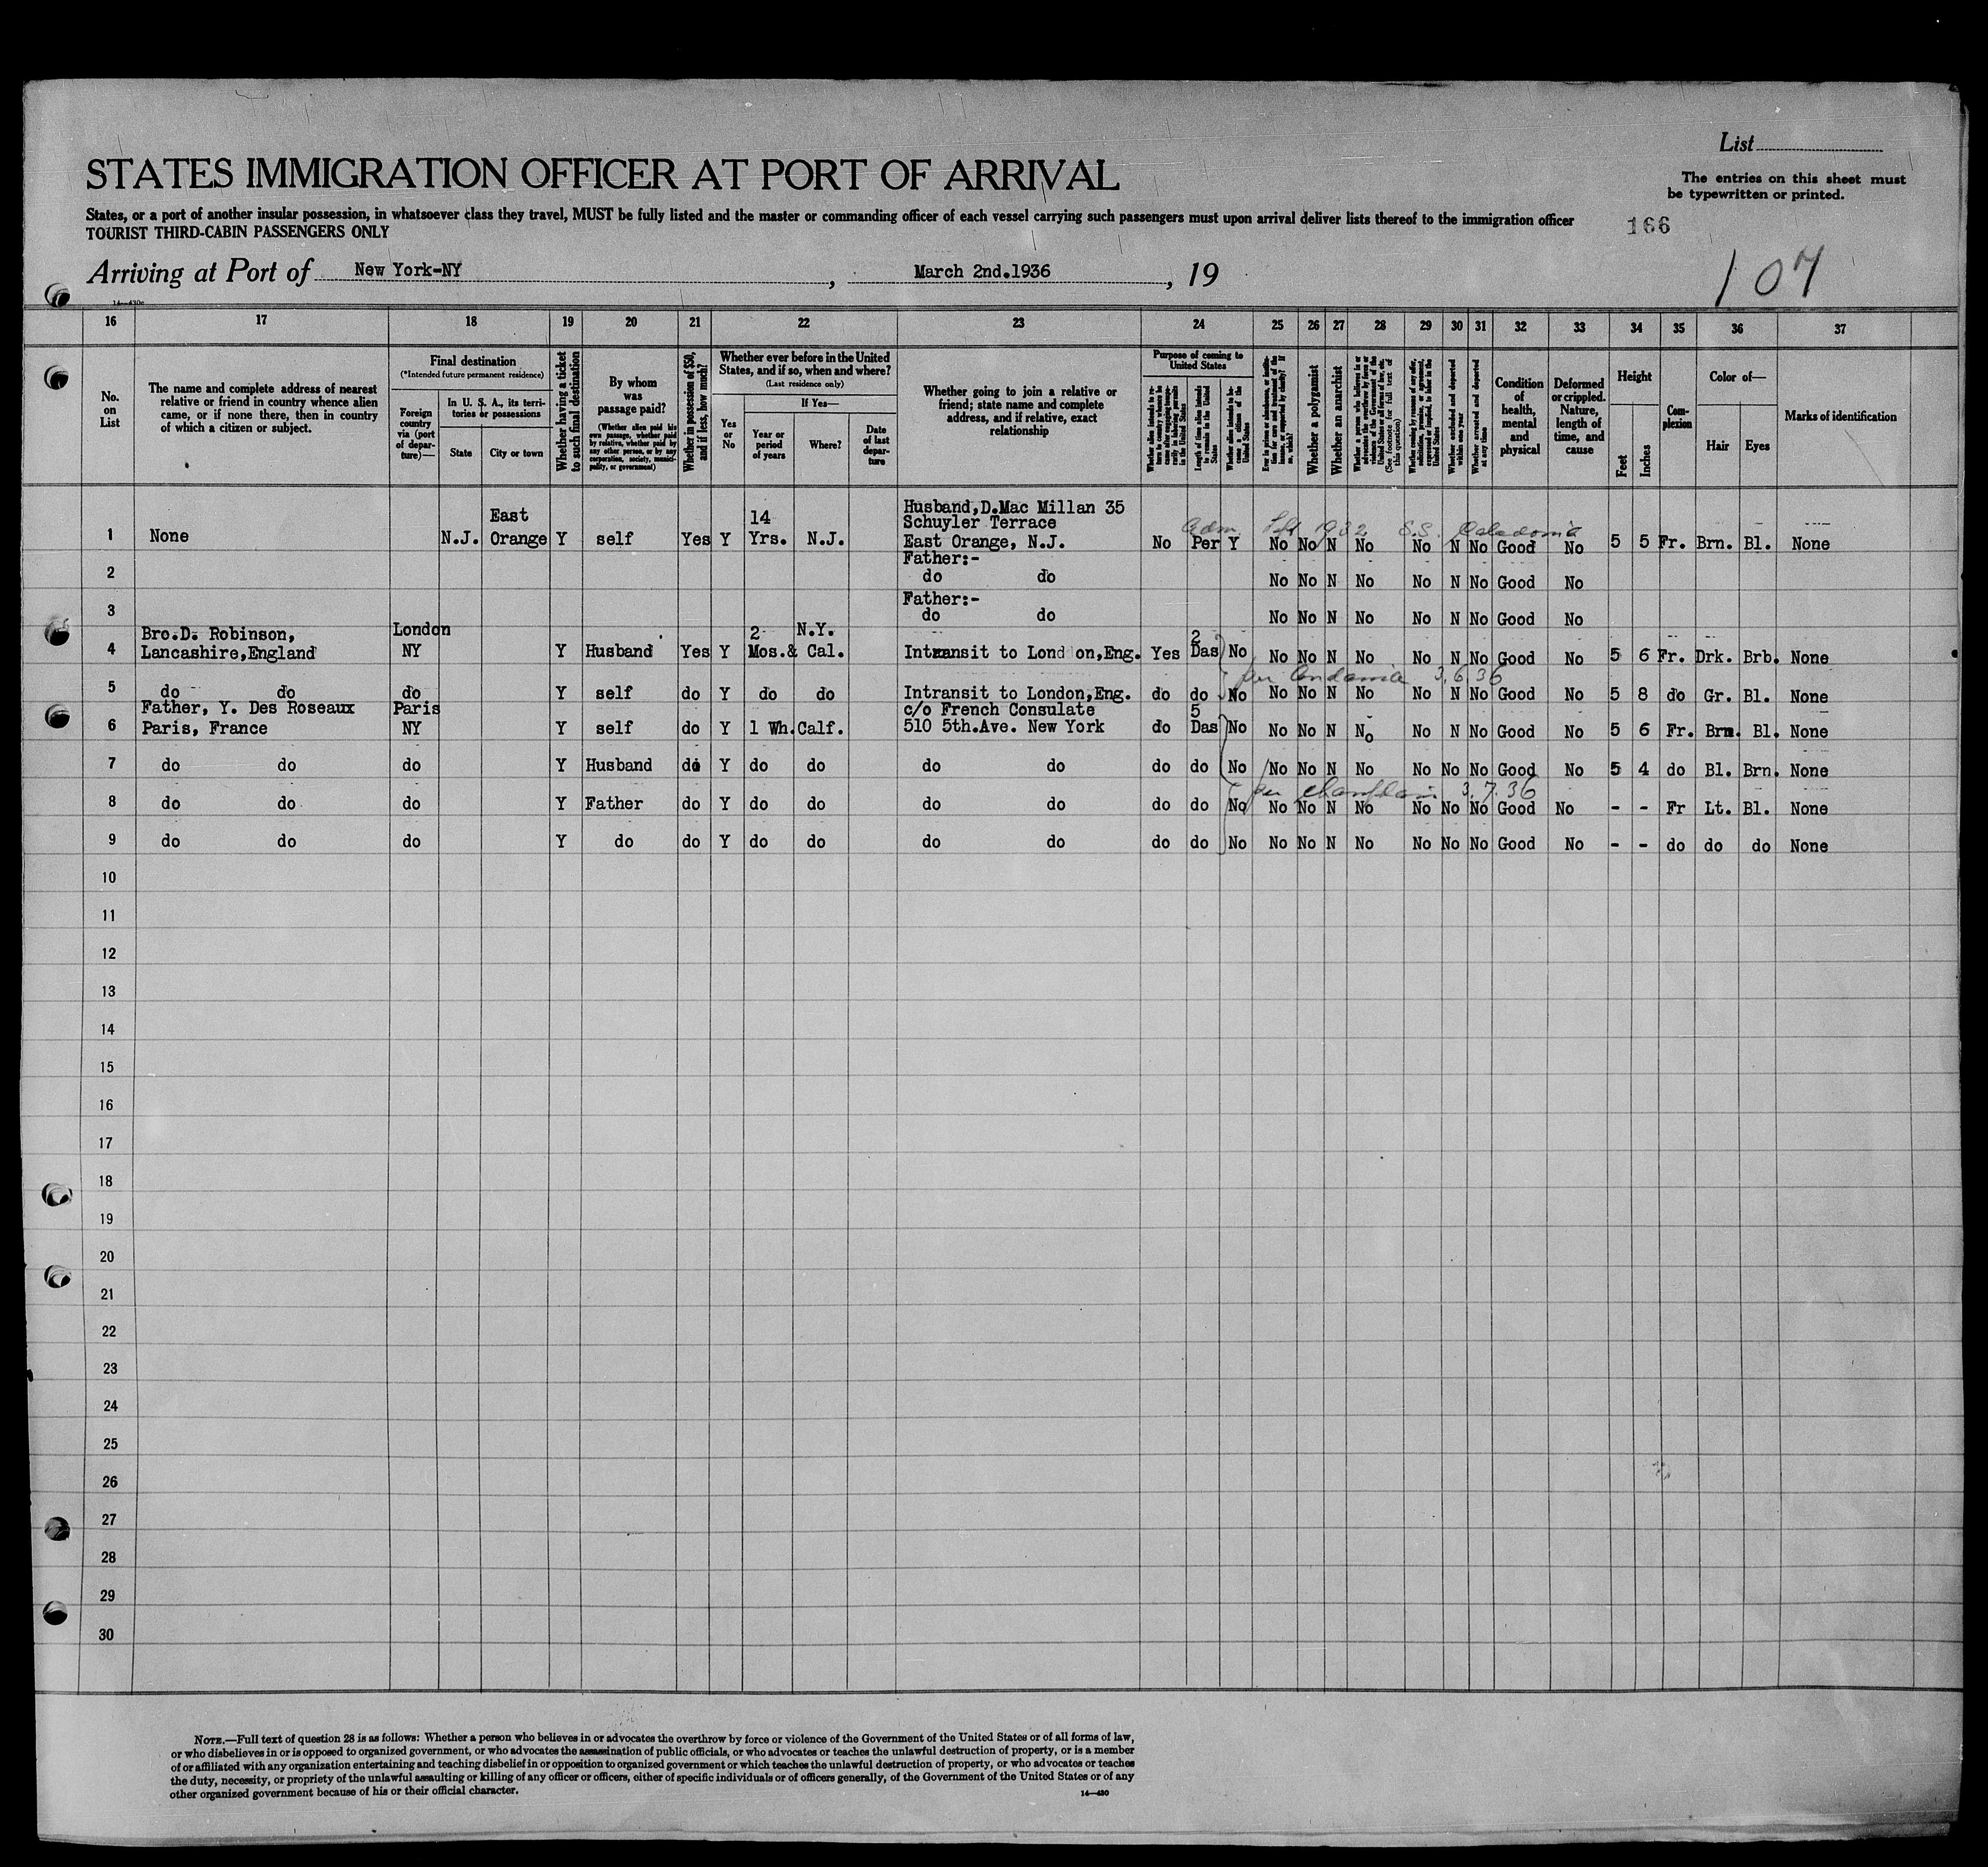 List
STATES IMMIGRATION OFFICER AT PORT OF ARRIVAL
The entries on this sheet must
be typewritten or printed.
States, or a port of another insular possession, in whatsoever class they travel, MUST be fully listed and the master or commanding officer of each vessel carrying such passengers must upon arrival deliver lists thereof to the immigration officer
TOURIST THIRD-CABIN PASSENGERS ONLY
166
Arriving at Port of New York-NY, March 2nd.1936, 19
107
16 17 18 19 20 21 22 23 24 25 26 27 28 29 30 31 32 33 34 35 36 37
No.
on
List
The name and complete address of nearest
relative or friend in country whence alien
came, or if none there, then in country
of which a citizen or subject.
Final destination
(*Intended future permanent residence)
Foreign
country
via (port
of depar-
ture)—
In U. S. A., its terri-
tories or possessions
State
City or town
Whether having a ticket
to such final destination
By whom
was
passage paid?
(Whether alien paid his
own passage, whether paid
by relative, whether paid by
any other person, or by any
corporation, society, munici-
pality, or government)
Whether in possession of $50,
and if less, how much?
Whether ever before in the United
States, and if so, when and where?
(Last residence only)
Yes
or
No
If Yes—
Year or
period
of years
Where?
Date
of last
depar-
ture
Whether going to join a relative or
friend; state name and complete
address, and if relative, exact
relationship
Purpose of coming to
United States
Length of time alien intends
to remain in the United
States
Whether alien intends to be-
come a citizen of the
United States
Whether a polygamist
Whether an anarchist
(See footnote for full text of
this question)
Whether excluded and deported
within one year
Whether arrested and deported
at any time
Condition
of
health,
mental
and
physical
Deformed
or crippled.
Nature,
length of
time, and
cause
Height
Feet
Inches
Com-
plexion
Color of—
Hair
Eyes
Marks of identification
Adm. 1932 S.S. Caledonia
1 None N.J. East Orange Y self Yes Y 14 Yrs. N.J. Husband,D.Mac Millan 35
Schuyler Terrace
East Orange, N.J. No Per Y No No N No No N No Good No 5 5 Fr. Brn. Bl. None
2 Father:-
do do No No N No No N No Good No
3 Father:-
do do No No N No No N No Good No
4 Bro.D. Robinson,
Lancashire,England London NY Y Husband Yes Y 2 Mos.& N.Y. Cal. Intransit to Lond on,Eng. Yes 2 Das No No No N No No N No Good No 5 6 Fr. Drk. Brb. None
per 3.6.36
5 do do do Y self do Y do do Intransit to London,Eng. do do No No No N No No N No Good No 5 8 do Gr. Bl. None
6 Father, Y. Des Roseaux
Paris, France Paris NY Y self do Y 1 Wh. Calf. c/o French Consulate
510 5th.Ave. New York do 5 Das No No No N No No N No Good No 5 6 Fr. Brn. Bl. None
7 do do do Y Husband do Y do do do do do do No No No N No No No No Good No 5 4 do Bl. Brn. None
per Champlain 3.7.36
8 do do do Y Father do Y do do do do do do No No No N No No No No Good No - - Fr Lt. Bl. None
9 do do do Y do do Y do do do do do do No No No N No No No No Good No - - do do do None
10
11
12
13
14
15
16
17
18
19
20
21
22
23
24
25
26
27
28
29
30
NOTE.—Full text of question 28 is as follows: Whether a person who believes in or advocates the overthrow by force or violence of the Government of the United States or of all forms of law,
or who disbelieves in or is opposed to organized government, or who advocates the assassination of public officials, or who advocates or teaches the unlawful destruction of property, or is a member
of or affiliated with any organization entertaining and teaching disbelief in or opposition to organized government or which teaches the unlawful destruction of property, or who advocates or teaches
the duty, necessity, or propriety of the unlawful assaulting or killing of any officer or officers, either of specific individuals or of officers generally, of the Government of the United States or of any
other organized government because of his or their official character.
14—430